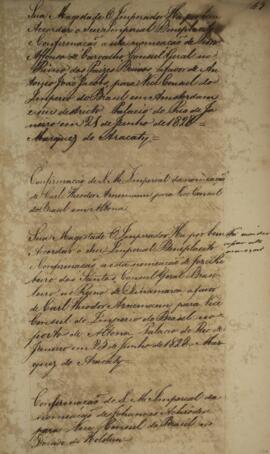 Sua Magestade O Imperador Ha por bem
Acordar o Seu Imperial Beneplacito
Confirmação a esta nomeação de
Affonso de Carvalho Consul Geral no
Reino dos Paizes Baixos a favor de An-
tonio João Jacob para Vice Consul do
Imperio do Brasil em Amsterdam
e seu districto Palacio do Rio de Ja-
neiro em 25 de Junho de 1828
Marquez do Aracaty
Confirmação de S. M. Imperial da nomeação
de Carl Theodor Arnemann, para Vice Consul
do Brasil em Altona
Sua Magestade O Imperador Ha por bem
Acordar o Seu Imperial Beneplacito
Confirmação a esta nomeação de
dos Santos Consul Geral Bra-
leiro no Reyno de Dinamarca a favor
de Carl Theodor Arnemann para Vice
Consul do Imperio do Brasil no
porto de Altona. Palacio do Rio de
Janeiro em 25 de Junho de 1828. Mar-
quez do Aracaty
Confirmação de S. M. Imperial da
nomeação de Johannes Schroder
para Vice Consul do Brasil no